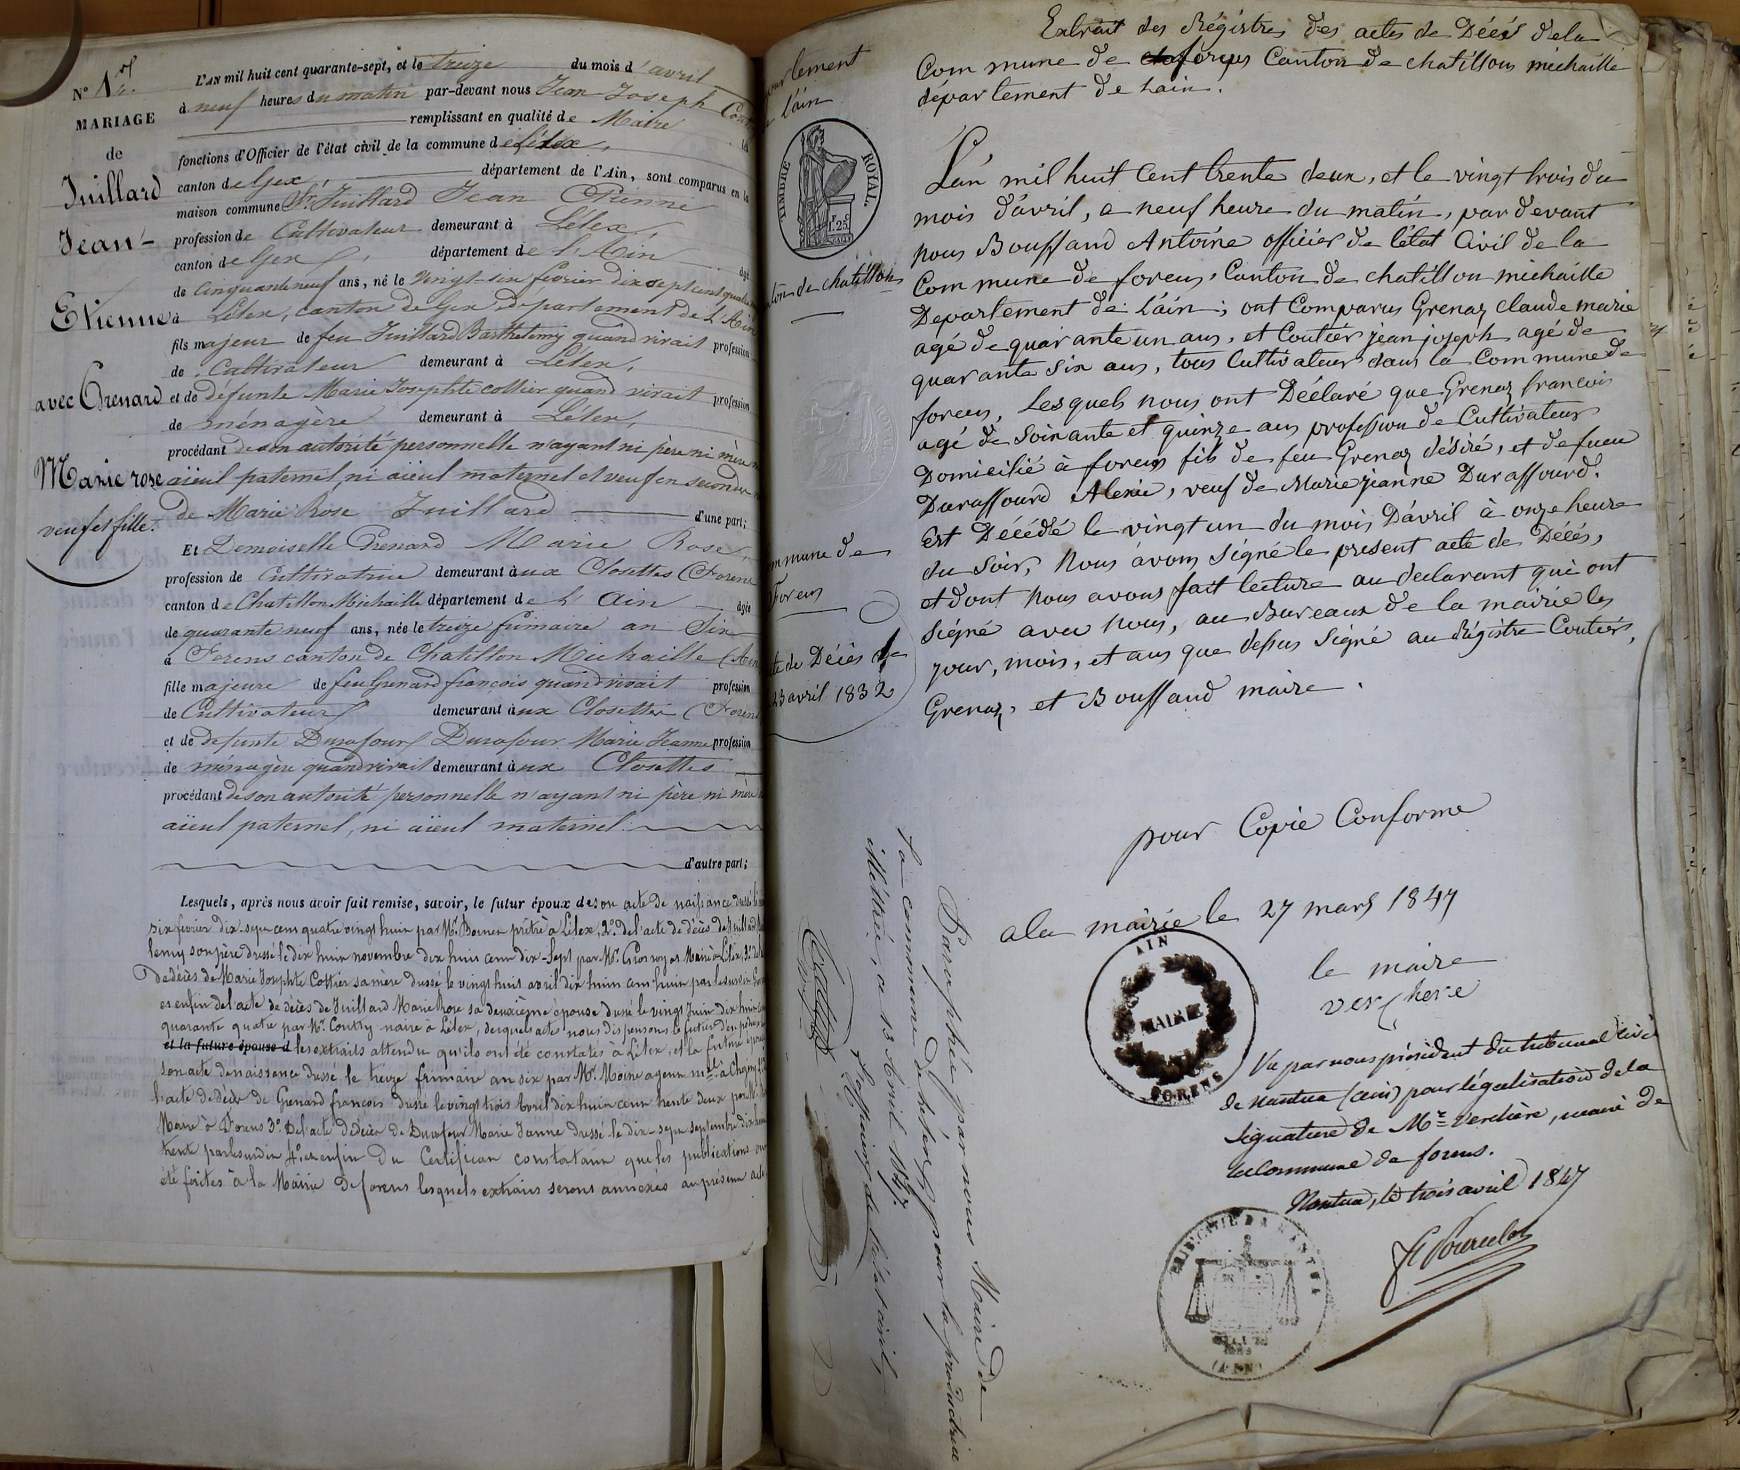 N° 1er
MARIAGE
de
Juillard
Jean-
Etienne
avec Grenard
Marie rose
veuf et fille.
L'AN mil huit cent quarante-sept, et le treize du mois d'avril
à neuf heures du matin par-devant nous Jean Joseph
remplissant en qualité de Maire
fonctions d'Officier de l'état civil de la commune de Lélex,
canton de Gex, département de l'Ain, sont comparus en la
maison commune Sr. Juillard Jean Etienne
profession de Cultivateur demeurant à Lélex,
canton de Gex, département de l'Ain âgé
de cinquante neuf ans, né le vingt-six février dix sept cent quatre
à Lélex, canton de Gex département de l'Ain
fils majeur de feu Juillard Barthelemy quand vivait profession
de Cultivateur demeurant à Lélex,
et de défunte Marie Josephte cottier quand vivait profession
de ménagère demeurant à Lélex,
procédant de son autorité personnelle n'ayant ni père ni mère ni
aïeul paternel, ni aïeul maternel et veuf en seconde
de Marie Rose Juillard d'une part;
Et Demoiselle Grenard Marie Rose,
profession de Cultivatrice demeurant aux Closettes (Forens
canton de Chatillon Michaille département de l'Ain âgée
de quarante neuf ans, née le treize frimaire an Six
à Forens canton de Chatillon Michaille (Ain
fille majeure de feu Grenard françois quand vivait profession
de Cultivateur demeurant aux Closettes (Forens
et de défunte Durafour Durafour Marie Jeanne profession
de ménagère quand vivait demeurant aux Closettes
procédant de son autorité personnelle n'ayant ni père ni mère
aïeul paternel, ni aïeul maternel.
d'autre part;
Lesquels, après nous avoir fait remise, savoir, le futur époux de son acte de naissance dressé le
six février dix-sept cent quatre vingt huit par Mr. prêtre à Lélex, 2° de l'acte de décès de Juillard
lemy son père dressé le dix huit novembre dix huit cent dix-sept par Mr. Grosroyat Maire à Lélex, 3°
de décès de Marie Josephte Cottier sa mère dressé le vingt huit avril dix huit cent huit par
et enfin de l'acte de décès de Juillard Marie Rose sa deuxième épouse dressé le vingt Juin dix huit
quarante quatre par Mr. Coutty maire à Lélex, desquels actes nous dispensons le futur d'en
et la future épouse d les extraits attendu qu'ils ont été constatés à Lélex, et la future
son acte de naissance dressé le treize frimaire an six par Mr. Moine agent
l'acte de décès de Grenard françois dressé le vingt trois Avril dix huit cent trente deux par
Maire à Forens 3° de l'acte de décès de Durafour Marie Jeanne dressé le dix-sept septembre dix
trente par 4° et enfin du Certificat constatant que les publications ont
été faites à la Mairie de forens lesquels extraits seront annexés au présent acte
Extrait des Régistres des actes de Décès de la
Commune de forens Canton de chatillons michaille
département de Lain.
l'ain
TIMBRE ROYAL
de chatillons
Commune de
Forens
de Décès de
23 avril 1832
L'an mil huit cent trente deux, et le vingt trois du
mois d'avril, a neuf heure du matin, par devant
nous Bouffand Antoine officier de l'état Civil de la
Commune de forens, Canton de chatillon michaille
Departement de L'ain; ont Comparus Grenaz claude marie
agé de quarante un ans, et Coutier jean joseph agé de
quarante six ans, tous Cultivateurs dans la Commune de
forens, Lesquels nous ont Déclaré que Grenaz francois
agé de soixante et quinze ans profession de Cultivateur
Domicilié à forens fils de feu Grenaz désiré, et defueu
Duraffourd Alexie, veuf de Marie jeanne Duraffourd.
Est Décédé le vingt un du mois D'avril à onze heure
du soir, Nous avons signé le present acte de Décès,
et dont nous avons fait lecture au declarant qui ont
signé avec nous, au Bureaux de la mairie les
jour, mois, et ans que dessus signé au Régistre Coutier,
Grenaz, et Bouffand maire.
pour Copie Conforme
a la mairie le 27 mars 1847
le maire
verchere
AIN
MAIRIE
FORENS
Vu par nous président du tribunal civil
de Nantua (ain) pour légalisation de la
signature de Mr. Verchère, maire de
la Commune de forens.
Nantua, le trois avril 1847
Paraphée par nous Maire de
la commune de Lélex, pour la
à Lélex, le 13 Avril 1847.
l'officier de l'état civil,